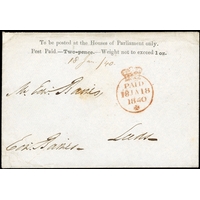 To be posted at the Houses of Parliament only.
Post Paid.—Two-pence.—Weight not to exceed 1 oz.
18 Jan /40
Mr. Edw. Baines
PAID
18 JA 18
1840
Leeds
Edw. Baines